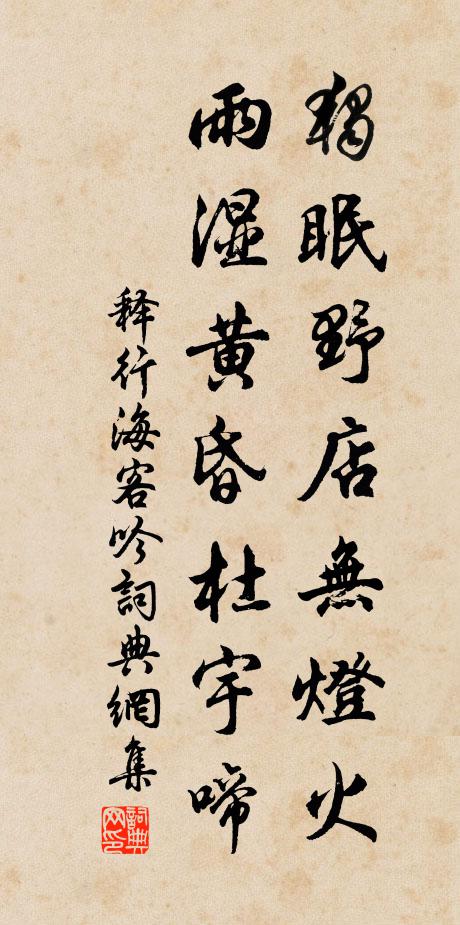 獨眠野店無燈火
雨湿黄昏杜宇啼
释行海客吟詞典網集
詞典网印